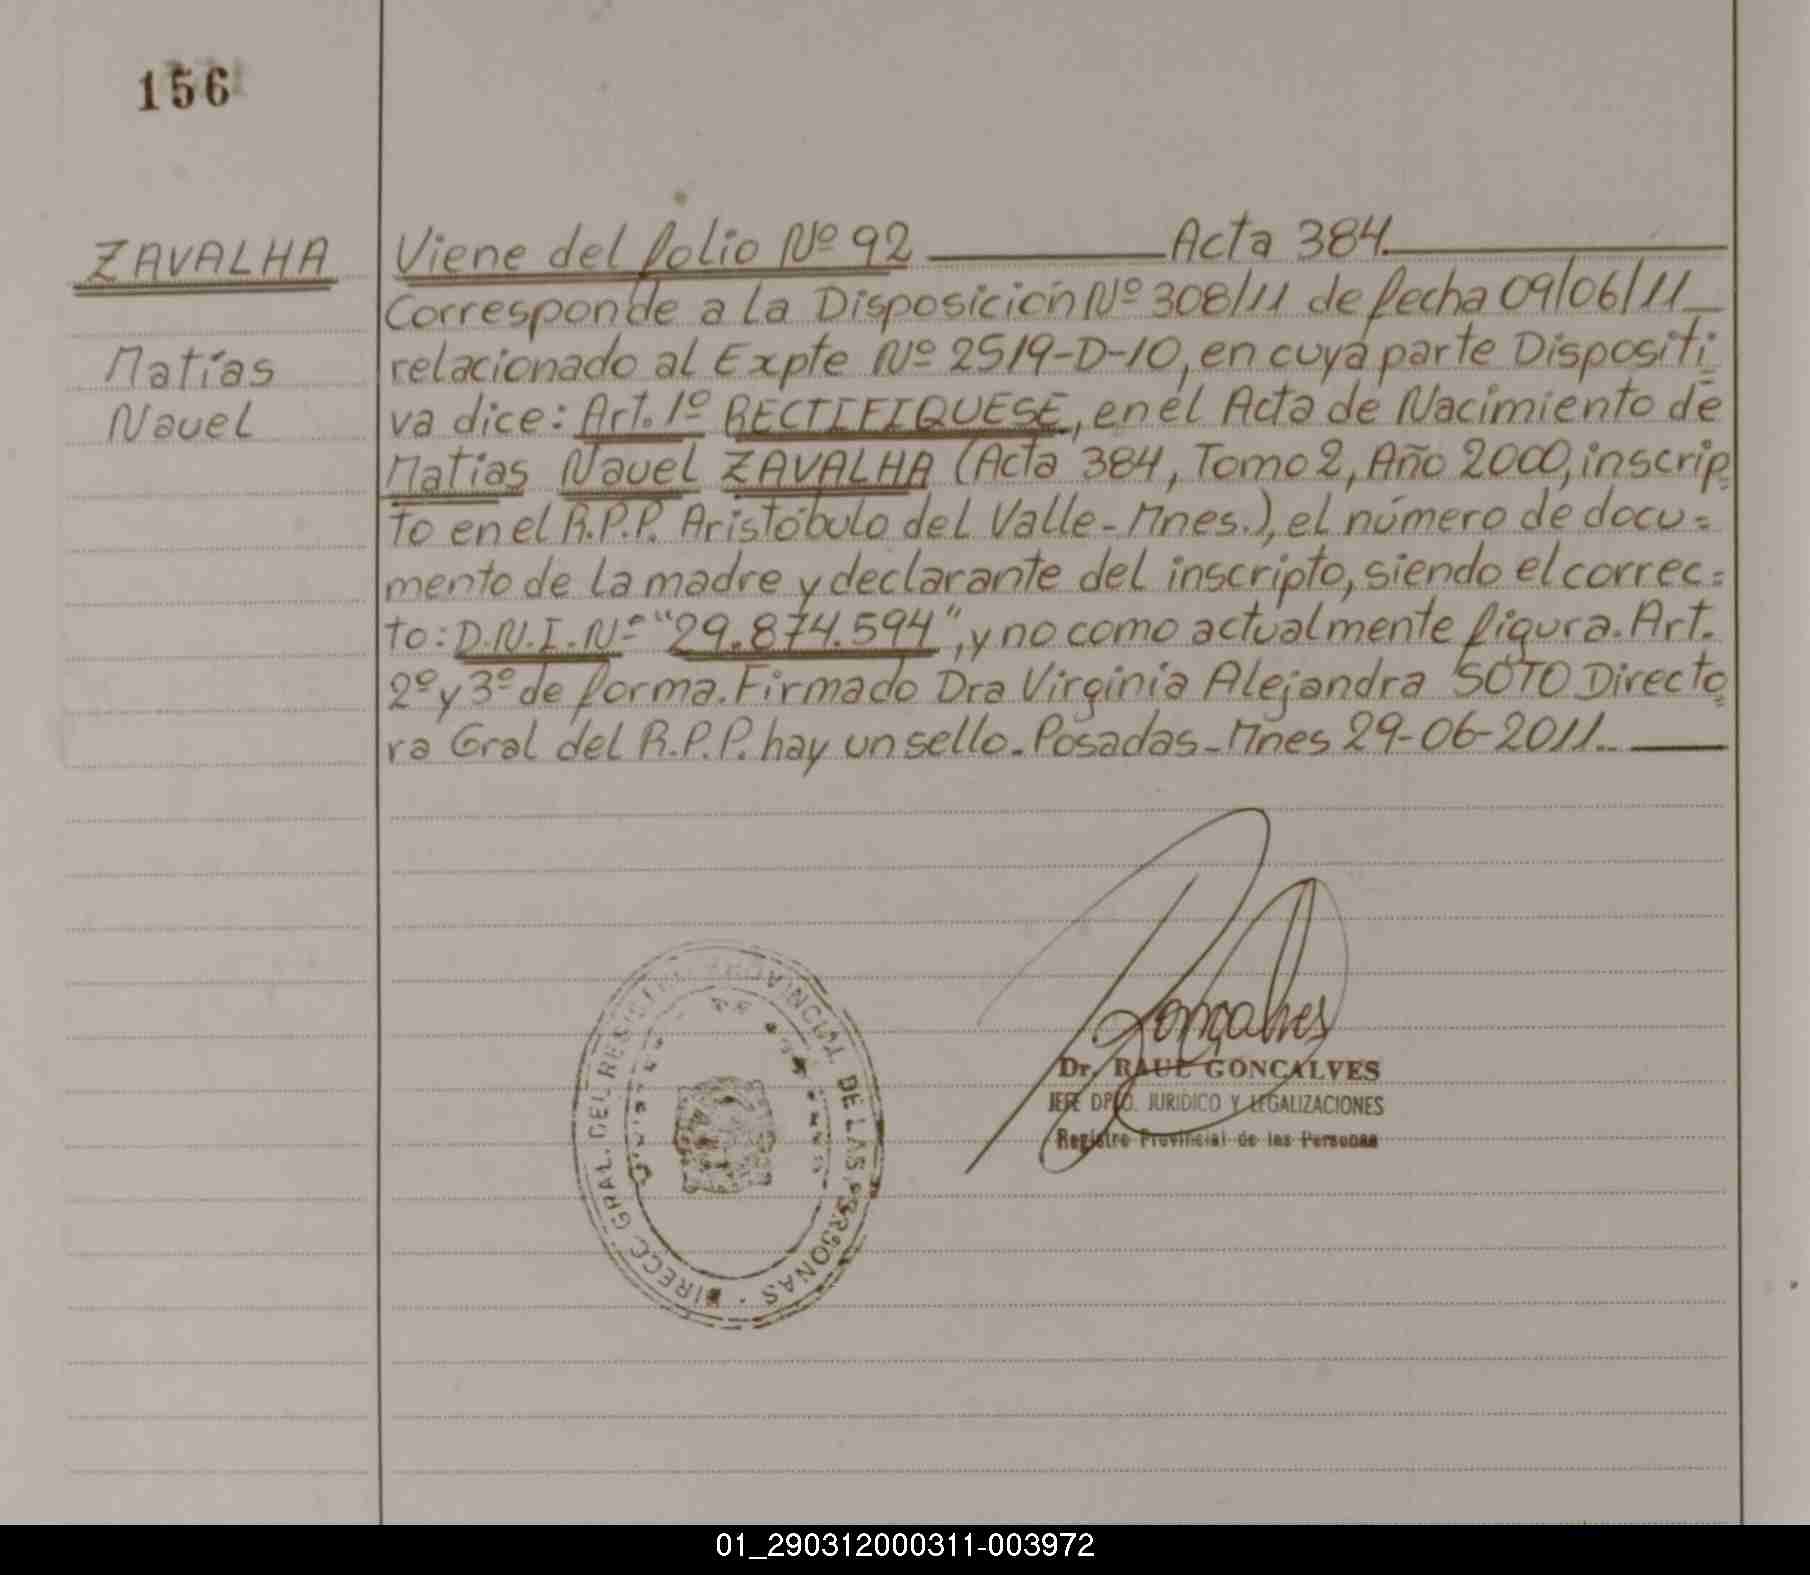 156
ZAVALHA
Matías
Nauel
Viene del folio Nº 92 Acta 384.
Corresponde a la Disposición Nº 308/11 de fecha 09/06/11
relacionado al Expte Nº 2519-D-10, en cuya parte Dispositi-
va dice: Art. 1º RECTIFIQUESE, en el Acta de Nacimiento de
Matías Nauel ZAVALHA (Acta 384, Tomo 2, Año 2000, inscrip=
to en el R.P.P. Aristóbulo del Valle-Mnes.), el número de docu=
mento de la madre y declarante del inscripto, siendo el correc=
to: D.N.I. Nº "29.874.594", y no como actualmente figura. Art.
2º y 3º de forma. Firmado Dra Virginia Alejandra SOTO Directo=
ra Gral del R.P.P. hay un sello. Posadas-Mnes 29-06-2011.
DIRECC. GRAL. DEL REGISTRO PROVINCIAL DE LAS PERSONAS
Gonçalves
Dr. RAUL GONCALVES
JEFE DPTO. JURIDICO Y LEGALIZACIONES
Registro Provincial de las Personas
01_290312000311-003972